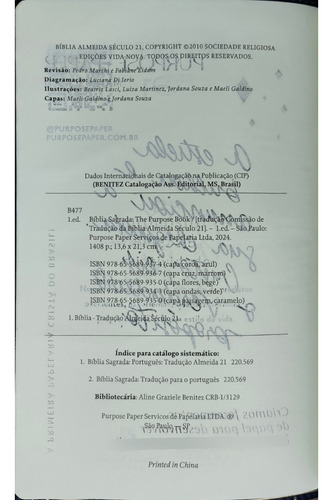 BÍBLIA ALMEIDA SÉCULO 21, COPYRIGHT ©2010 SOCIEDADE RELIGIOSA
EDIÇÕES VIDA NOVA. TODOS OS DIREITOS RESERVADOS.
Revisão: Pedro Marchi e Fabiane Eidam
Diagramação: Luciana Di Iorio
Ilustrações: Beatriz Lasci, Luiza Martinez, Jordana Souza e Maeli Galdino
Capas: Maeli Galdino e Jordana Souza
@PURPOSEPAPER
PURPOSEPAPER.COM.BR
Dados Internacionais de Catalogação na Publicação (CIP)
(BENITEZ Catalogação Ass. Editorial, MS, Brasil)
B477
1.ed. Bíblia Sagrada: The Purpose Book / [tradução Comissão de
Tradução da Bíblia Almeida Século 21]. – 1.ed. – São Paulo:
Purpose Paper Serviços de Papelaria Ltda, 2024.
1408 p; 13,6 x 21,3 cm
ISBN 978-65-5689-937-4 (capa corda, azul)
ISBN 978-65-5689-936-7 (capa cruz, marrom)
ISBN 978-65-5689-935-0 (capa flores, bege)
ISBN 978-65-5689-934-3 (capa ondas, verde)
ISBN 978-65-5689-935-0 (capa paisagem, caramelo)
1. Bíblia - Tradução Almeida Século 21.
Índice para catálogo sistemático:
1. Bíblia Sagrada: Português: Tradução Almeida 21 220.569
2. Bíblia Sagrada: Tradução para o português 220.569
Bibliotecária: Aline Graziele Benitez CRB-1/3129
Purpose Paper Servicos de Papelaria LTDA. @
São Paulo — SP
Printed in China
A PRIMEIRA PAPELARIA CRISTÃ DO BRASIL!